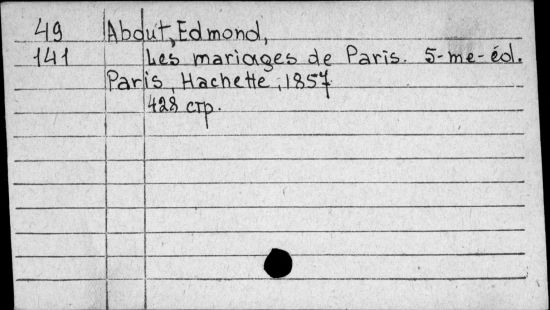 49 About, Edmond,
141 Les mariages de Paris. 5-me-éd.
Paris, Hachette, 1857
428 стр.